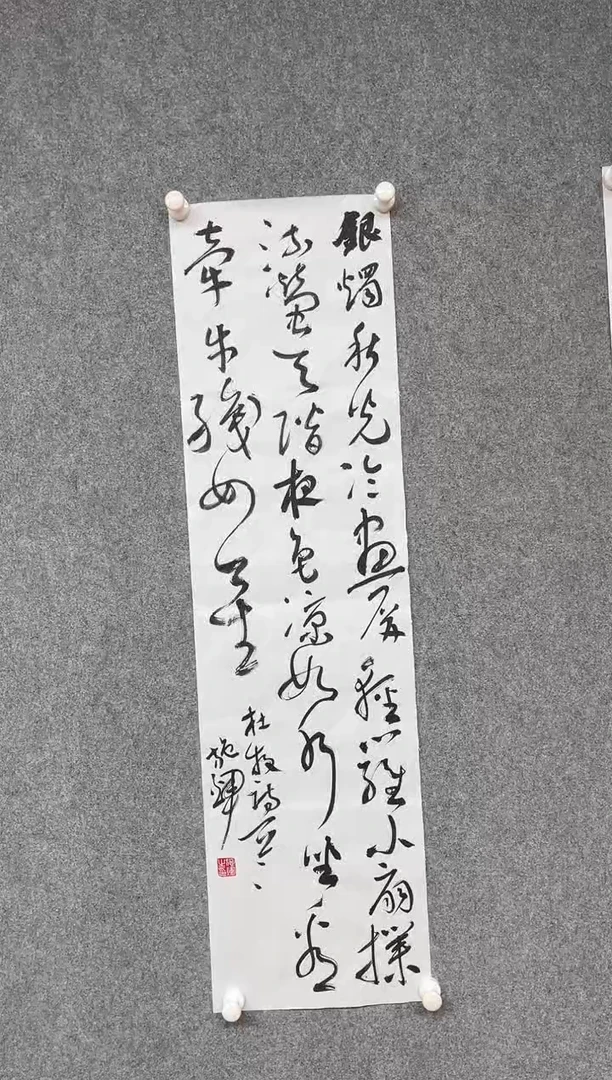 銀燭秋光冷畫屏輕羅小扇撲
流螢天階夜色涼如水坐看
牽牛織女星
杜牧詩